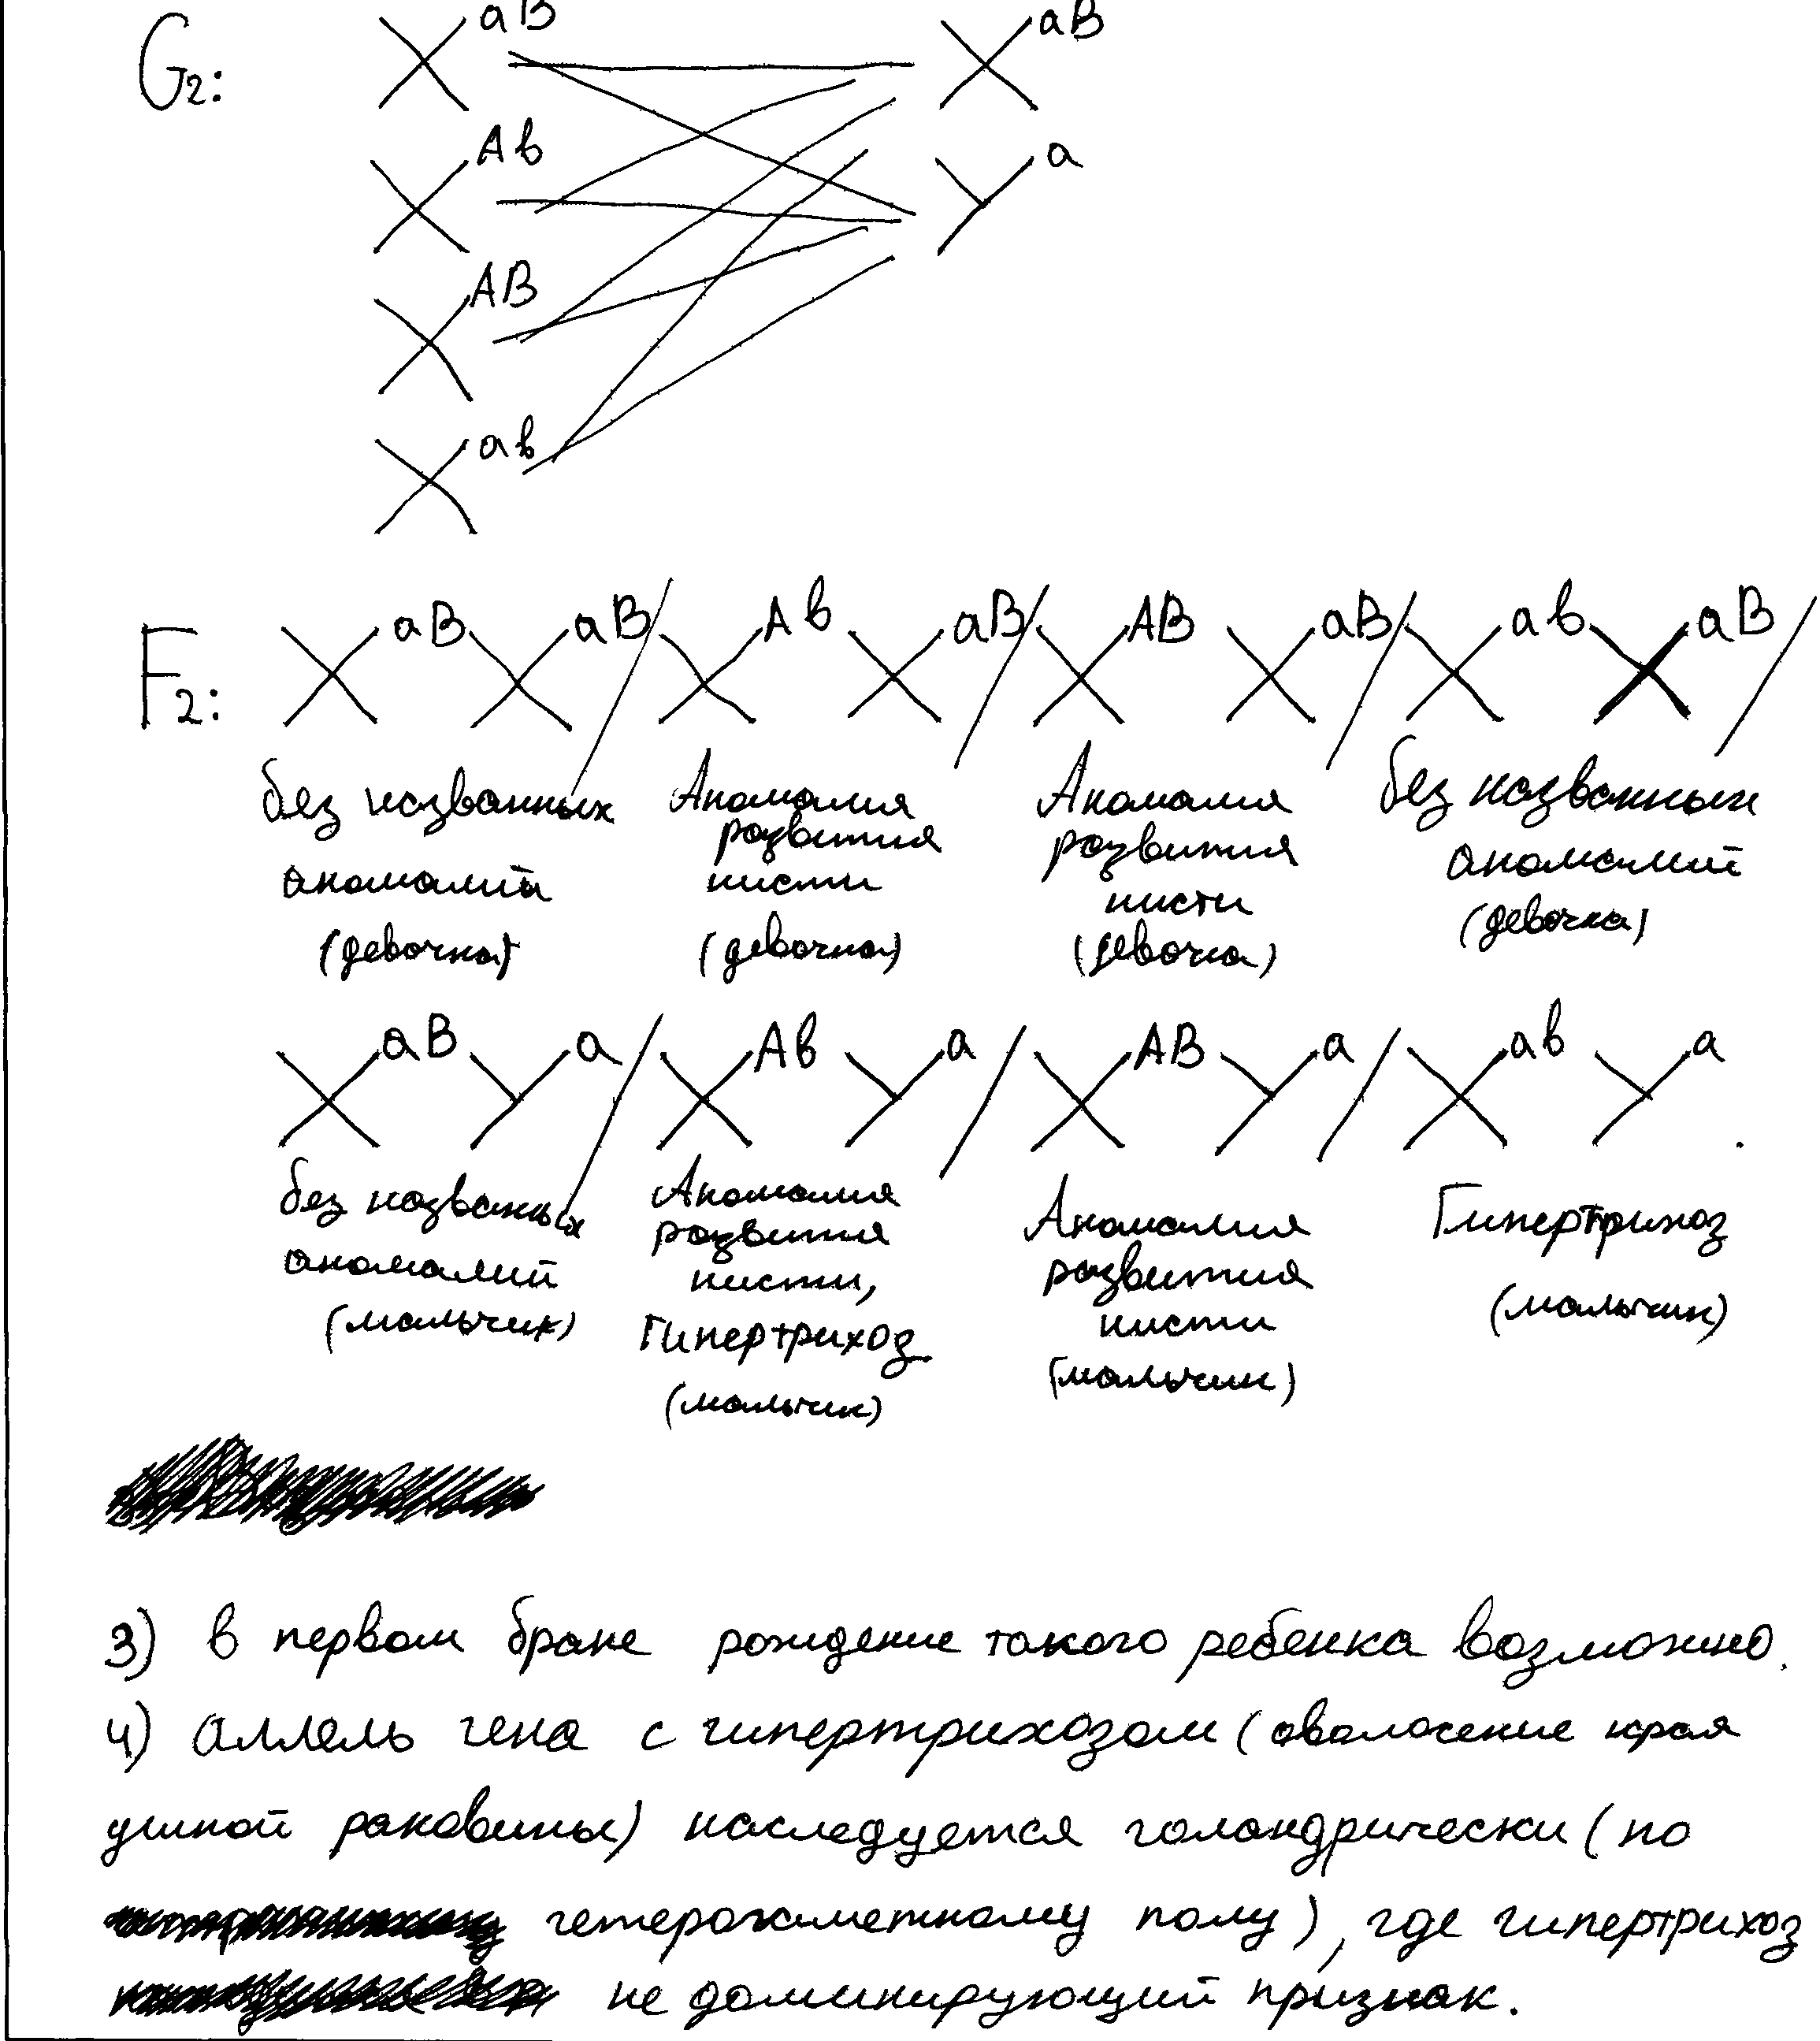 G₂: X^aB X^aB
X^Ab Y^a
X^AB
X^ab
F₂: X^aB X^aB / X^Ab X^aB / X^AB X^aB / X^ab X^aB /
без названных аномалий (девочка)
Аномалия развития кисти (девочка)
Аномалия развития кисти (девочка)
без названных аномалий (девочка)
X^aB Y^a / X^Ab Y^a / X^AB Y^a / X^ab Y^a.
без названных аномалий (мальчик)
Аномалия развития кисти, Гипертрихоз (мальчик)
Аномалия развития кисти (мальчик)
Гипертрихоз (мальчик)
3) в первом браке рождение такого ребенка возможно.
4) Аллель гена с гипертрихозом (оволосение края
ушной раковины) наследуется голандрически (по
гетерогаметному полу), где гипертрихоз
не доминирующий признак.